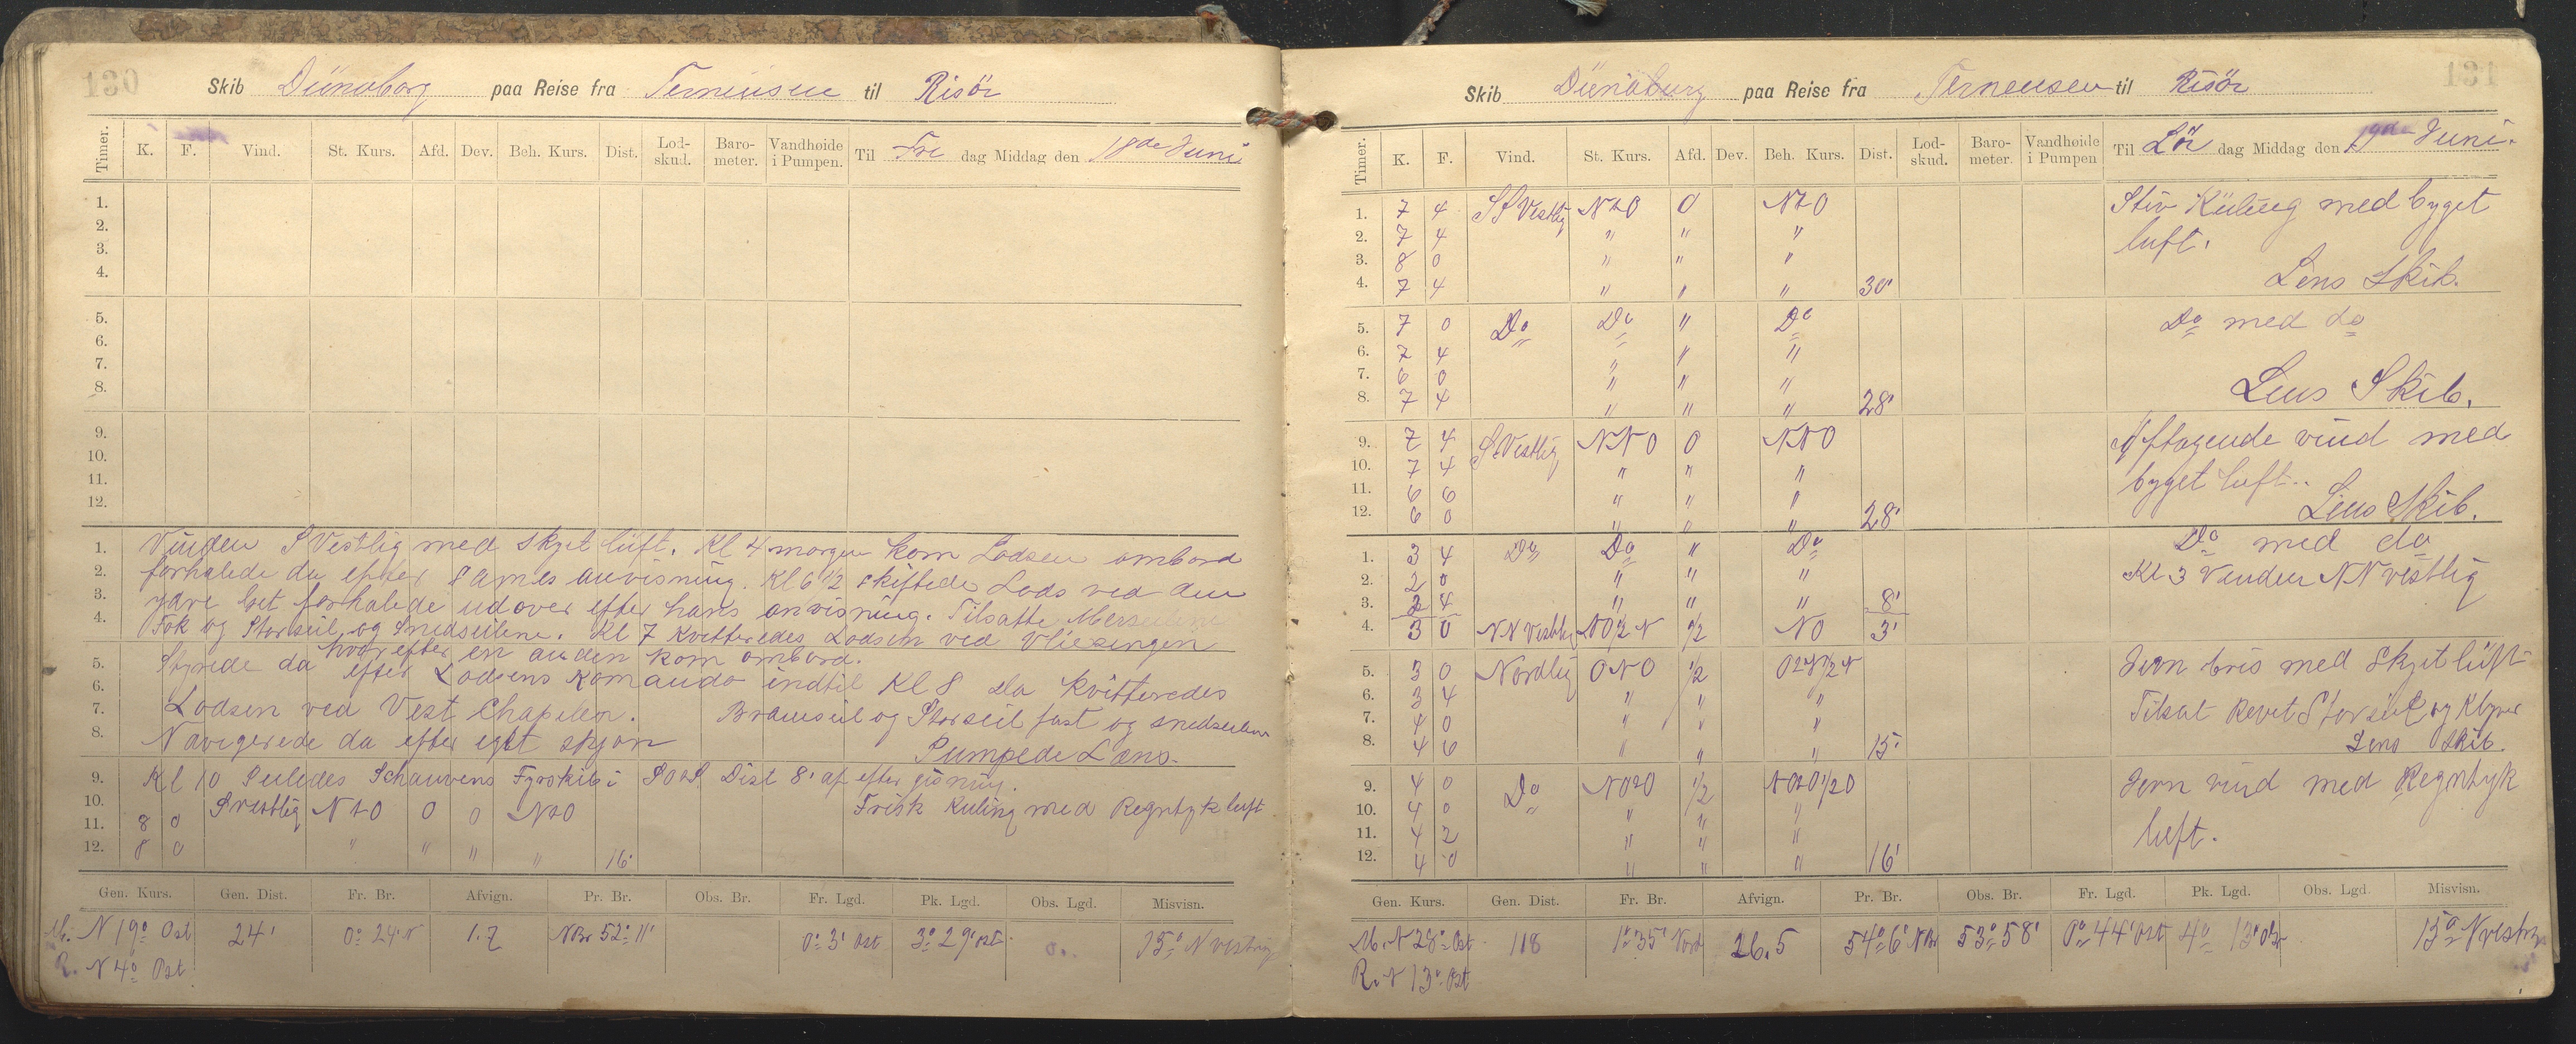 130
Skib Dünaborg paa Reise fra Terneusen til Risör
Timer. K. F. Vind. St. Kurs. Afd. Dev. Beh. Kurs. Dist. Lod-skud. Baro-meter. Vandhøide i Pumpen. Til Fre dag Middag den 18de Juni
1.
2.
3.
4.
5.
6.
7.
8.
9.
10.
11.
12.
1. Vinden S Vestlig med skyet lüft. Kl 4 morgen kom Lodsen ombord
2. forhalede da efter sames anvisning. Kl 6 1/2 skiftede Lods ved den
3. ydre forhalede udover efter hans anvisning. Tilsatte Merseilene
4. Fok og Storseil og Snedseilene. Kl 7 Kvitteredes Lodsen ved Vliesingen
hvorefter en anden kom ombord.
5. Styrede da efter Lodsens Komando indtil Kl 8 da kvitteredes
6. Lodsen ved Vest Chapelen. Bramseil og Storseil fast og snedseilene
7. Navigerede da efter eget skjön
8. Pumpede Læns.
9. Kl 10 Peiledes Schauvens Fyrskib i SOtS Dist 8' af efter gisning.
10. S vestlig NtO 0 0 NtO Frisk Kuling med Regntyk luft
11. 8 0
12. 8 0 " " " " 16'
Gen. Kurs. Gen. Dist. Fr. Br. Afvign. Pr. Br. Obs. Br. Fr. Lgd. Pk. Lgd. Obs. Lgd. Misvisn.
M. N 19° Ost 24' 0° 24' N 1.7 NBr 52° 11' 0° 3' Ost 3° 29' ost 15° N vestlig
R. N 4° Ost
131
Skib Dünaburg paa Reise fra Terneusen til Risör
Timer. K. F. Vind. St. Kurs. Afd. Dev. Beh. Kurs. Dist. Lod-skud. Baro-meter. Vandhøide i Pumpen Til Lör dag Middag den 19de Juni.
1. 7 4 SS Vestlig NtO 0 NtO Stiv Küling med byget
2. 7 4 " " " luft.
3. 8 0 " " "
4. 7 4 " " " 30' Lens Skib.
5. 7 0 Do Do " Do Do med do
6. 7 4 " " "
7. 6 0 " " "
8. 7 4 " " " 28' Lens Skib.
9. 7 4 S Vestlig NNO 0 NNO Aftagende vind med
10. 7 4 " " " byget luft.
11. 6 6 " " "
12. 6 0 " " " 28' Lens Skib.
1. 3 4 Do Do " Do Do med do
2. 2 0 " " " Kl 3 Vinden NN vestlig
3. 2 4 " " " 8'
4. 3 0 NN Vestlig NO 1/2 N 1/2 NO 3'
5. 3 0 Nordlig ONO 1/2 OtN 1/2 N Jevn bris med Skyet lüft
6. 3 4 " " "
7. 4 0 " " " Tilsat Revet Storseil og Klyver
8. 4 6 " " " 15' Lens Skib.
9. 4 0 Do NOtO 1/2 NOtO 1/2 O Jevn vind med Regntyk
10. 4 0 " " "
11. 4 2 " " " luft.
12. 4 0 " " " 16'
Gen. Kurs. Gen. Dist. Fr. Br. Afvign. Pr. Br. Obs. Br. Fr. Lgd. Pk. Lgd. Obs. Lgd. Misvisn.
M. N 28° Ost 118 1° 35' Nord 26.5 54° 6' NBr 53° 58' 0° 44' Ost 4° 13' Ost 15° N vestlig
R. N 13° Ost